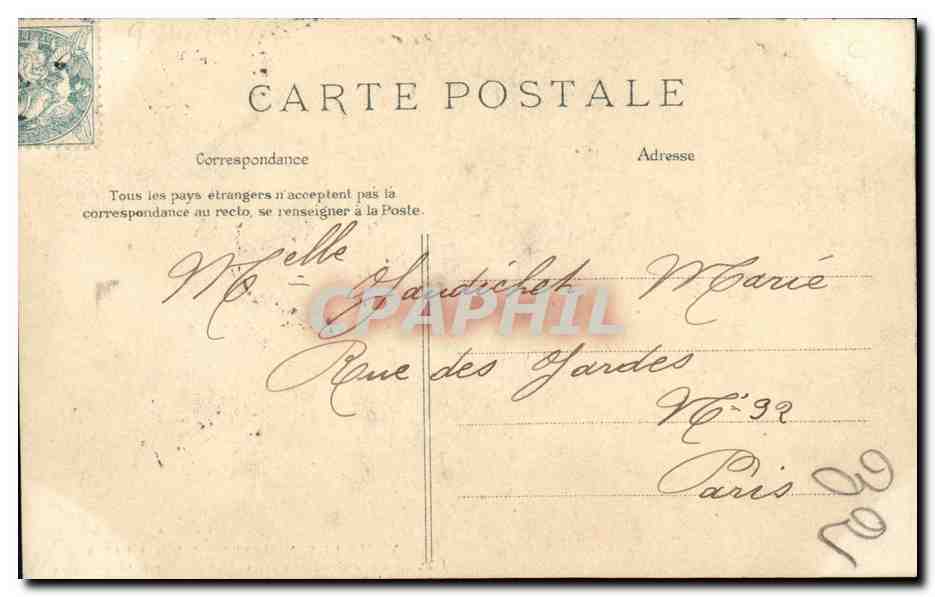 CARTE POSTALE
Correspondance
Adresse
Tous les pays étrangers n'acceptent pas la
correspondance au recto, se renseigner à la Poste.
Melle Marie
Rue des
Nº 92
Paris
CPAPHIL